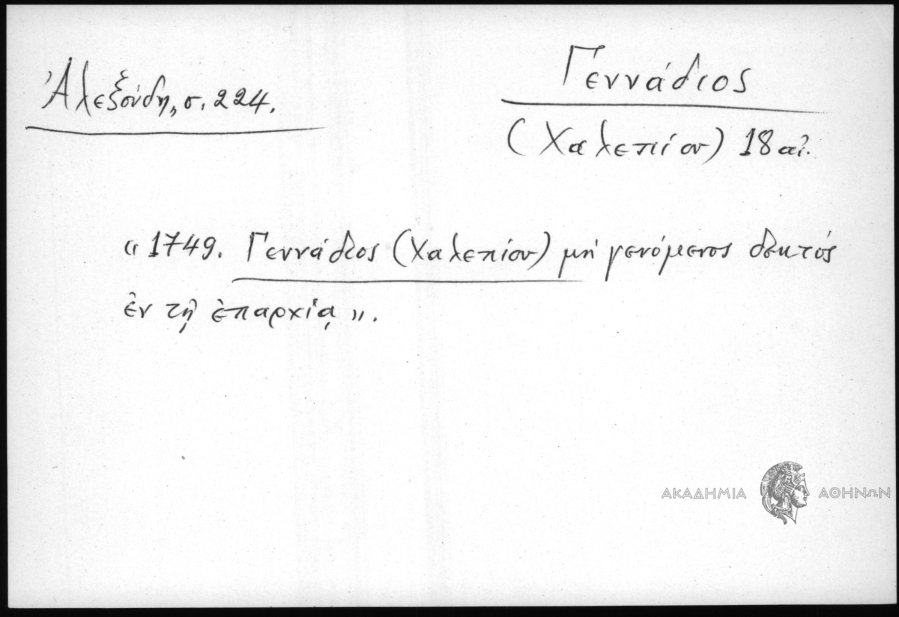 Γεννάδιος
Ἀλεξούδη, σ. 224.
(Χαλεπίου) 18 αἰ.
« 1749. Γεννάδιος (Χαλεπίου) μὴ γενόμενος δεκτός
ἐν τῇ ἐπαρχίᾳ ».
ΑΚΑΔΗΜΙΑ ΑΘΗΝΩΝ